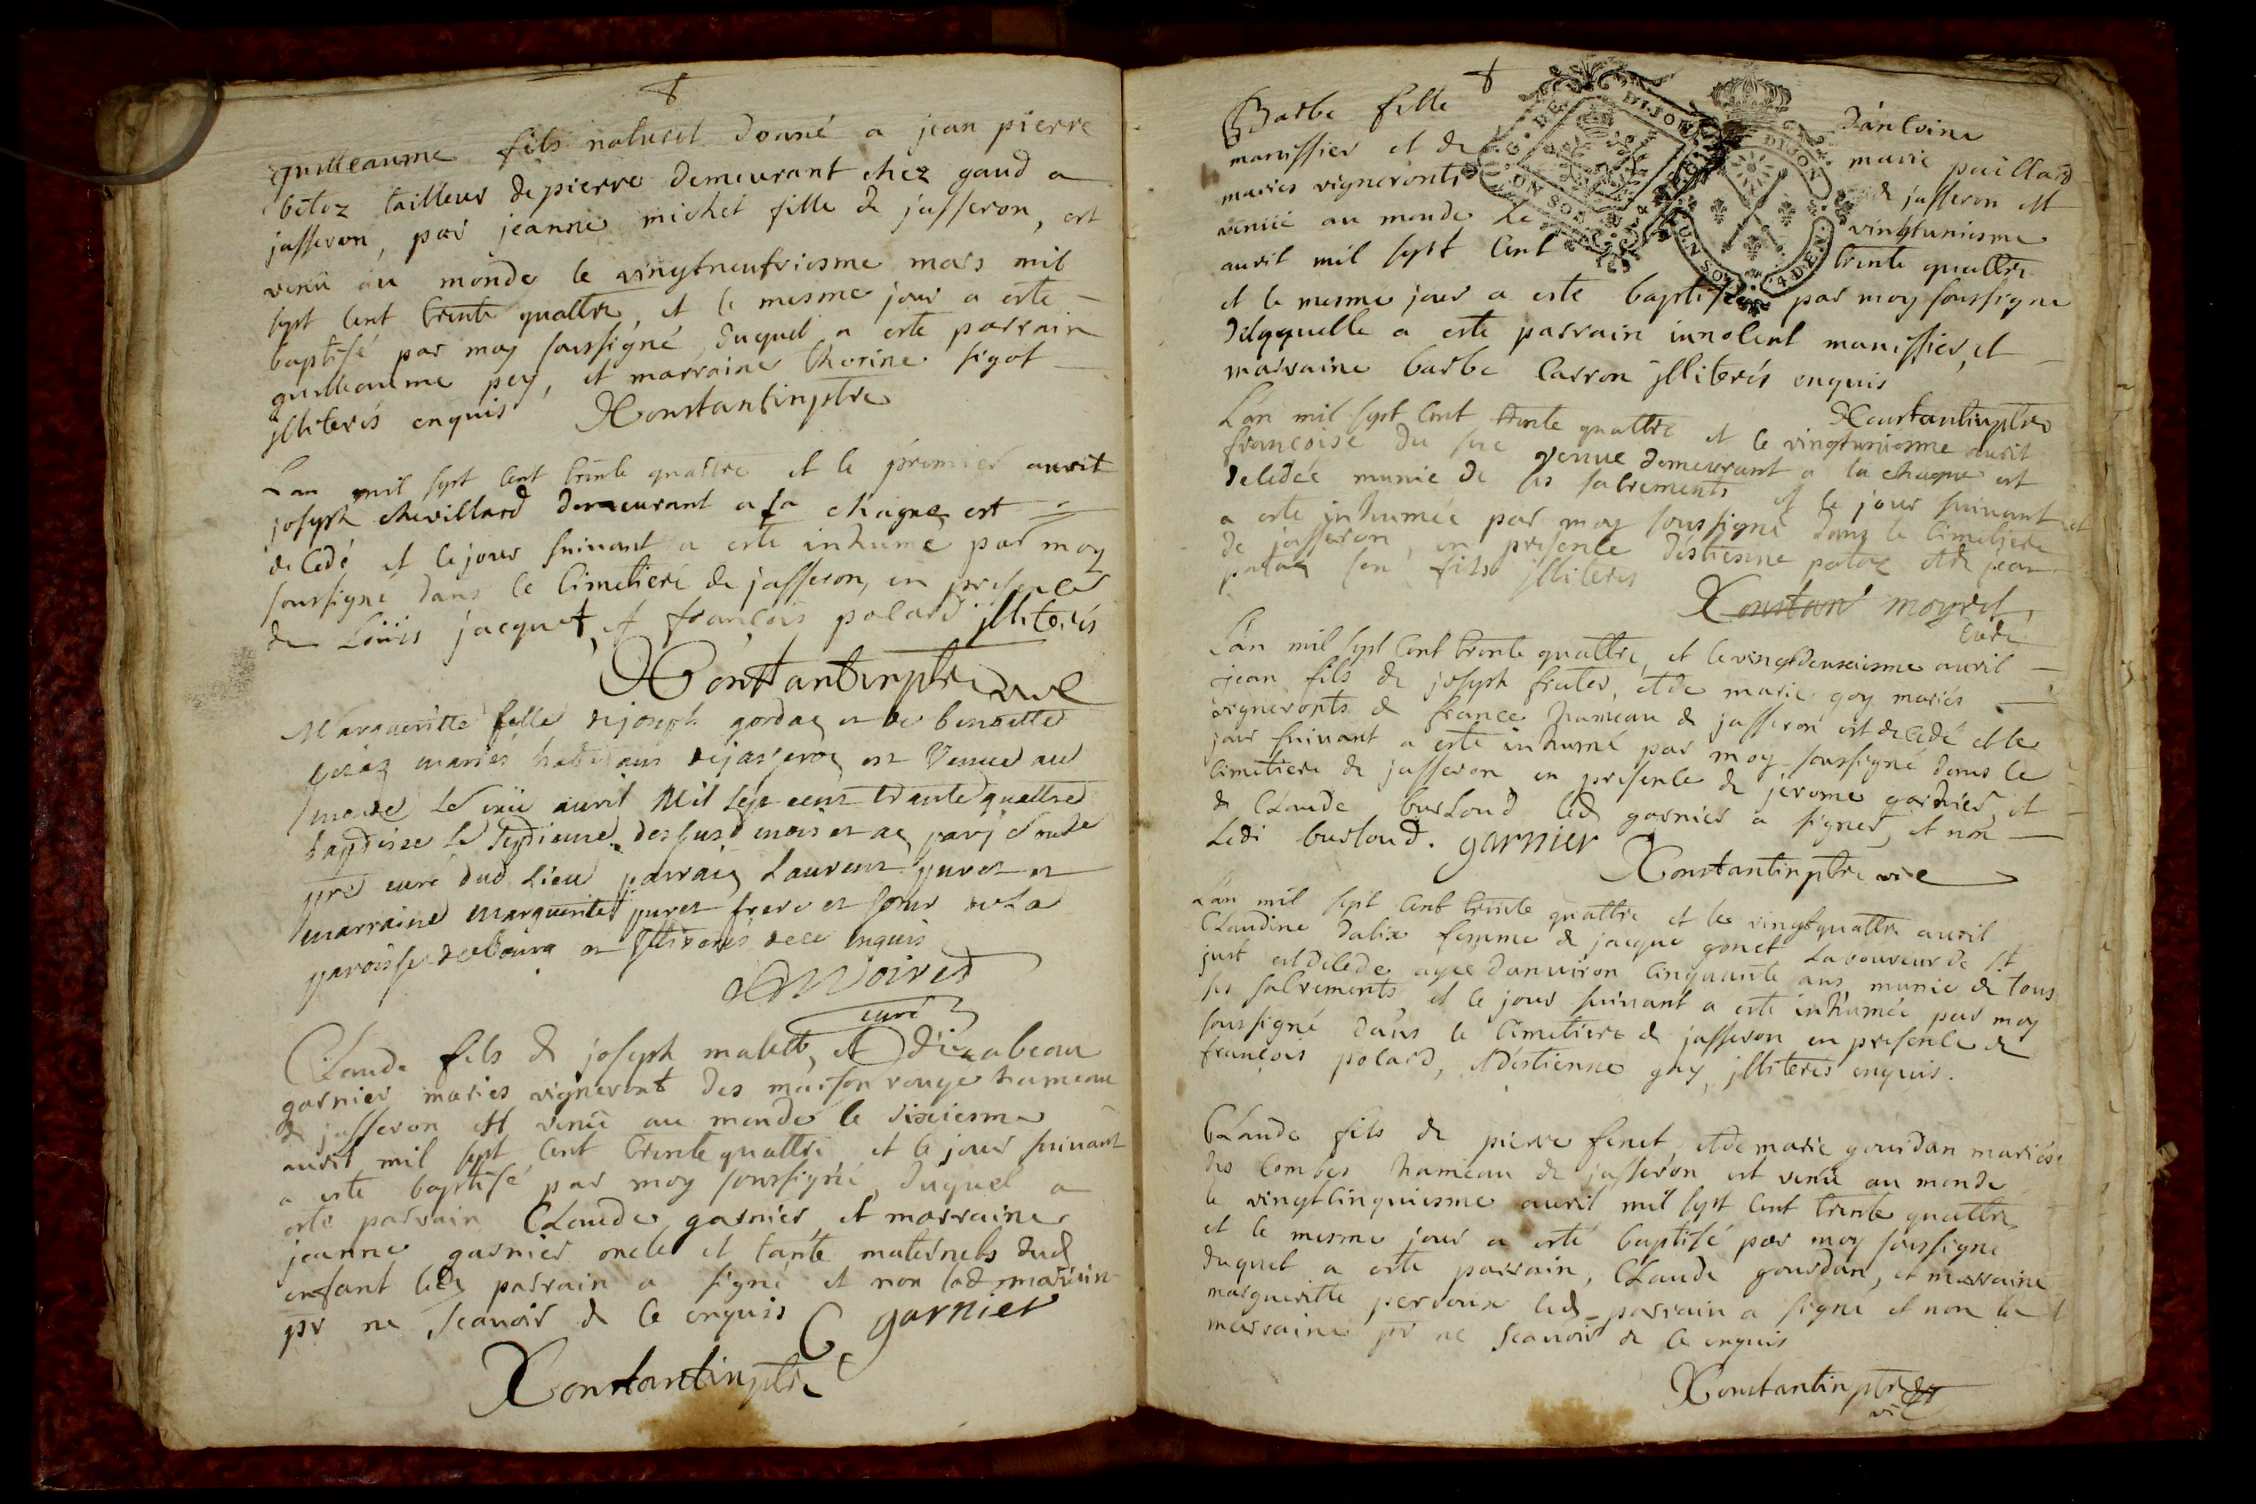 guilleaume fils naturel donné a jean pierre
bétoz tailleur de pierre demeurant chez gaud a
jasseron, par jeanne michel fille de jasseron, est
venû au monde le vingtneufviesme mars mil
sept cent trente quattre, et le mesme jour a esté
baptisé par moy soussigné, duquel a esté parrain
guilleaume pey, et marraine therine sigot
jlliterés enquis Constantin ptre
Lan mil sept cent trente quattre et le prémier avril
joseph chevillard demeurant a la chagne est
decedé et le jour suivant a esté inhumé par moy
soussigné dans le cimetieré de jasseron, en presence
de Loüis jacquet, et françois polard jlliterés
Constantin ptre vic
Margueritte fille de joseph gordaz et de benoitte
mariés habitans de jasseron est venue au
monde le avril Mil sept cent trante quattre
baptisee le septieme dessusd mois et an par
ptre curé dud Lieu parrain Laurent puret et
marraine Marguerite puret frere et sœur de La
paroisse de et Jlliterés de ce enquis
curé
Claude fils de joseph malett, et d'izabeau
garnier mariés vigneront des maison rouge hameau
de jasseron est venû au monde le sixiesme
avril mil sept cent trente quattre et le jour suivant
a esté baptisé par moy soussigné, duquel a
esté parrain Claude garnier et marraine
jeanne garnier oncle et tante maternels dud
enfant led parrain a signé et non lad marrain
pr ne scavoir de ce enquis C garnier
Constantin ptre
Barbe fille d'antoine
manissier et de marie paillard
mariés vigneronts de jasseron est
venüe au monde le vingtuniesme
avril mil sept cent trente quattre
et le mesme jour a esté baptisée par moy soussigné
delaquelle a esté parrain innocent manissier, et
marraine barbe carron jlliterés enquis
Constantin ptre
L'an mil sept cent trente quattre et le vingtuniesme avril
francoise du suc venue demeurant a la chagne est
decedée munie de ses sacrements et le jour suivant
a esté inhumée par moy soussigné dans le cimetiere
de jasseron, en presence d'estienne poloz et de jean
poloz son fils jlliterés
Constan moyret,
curé
L'an mil sept cent trente quattre, et le vingtdeuxiesme avril
jean fils de joseph fruter, et de marie goy mariés
vigneronts de france hameau de jasseron est decedé et le
jour suivant a esté inhumé par moy soussigné dans le
cimetiere de jasseron en presence de jerome garnier, et
de Claude burtoud led garnier a signé, et non
ledi burtoud. garnier
Constantin ptre vic
Lan mil sept cent trente quattre et le vingtquattre avril
Claudine dalix femme de jacque gonet Laboureur de st
just est decede agée d'anviron cinquante ans munie de tous
ses sacrements et le jour suivant a esté inhumée par moy
soussigné dans le cimetiere de jasseron en presence de
françois polard, et d'estienne guy, jlliterés enquis.
Claude fils de pierre fenet et de marie gourdan mariés
des combes hameau de jasseron est venû au monde
le vingtcinquiesme avril mil sept cent trente quattre
et le mesme jour a esté baptisé par moy soussigné
duquel a esté parrain, Claude gourdan, et marraine
margueritte perdoux led parrain a signé et non la
marraine pr ne scavoir de ce enquis
Constantin ptre
vic